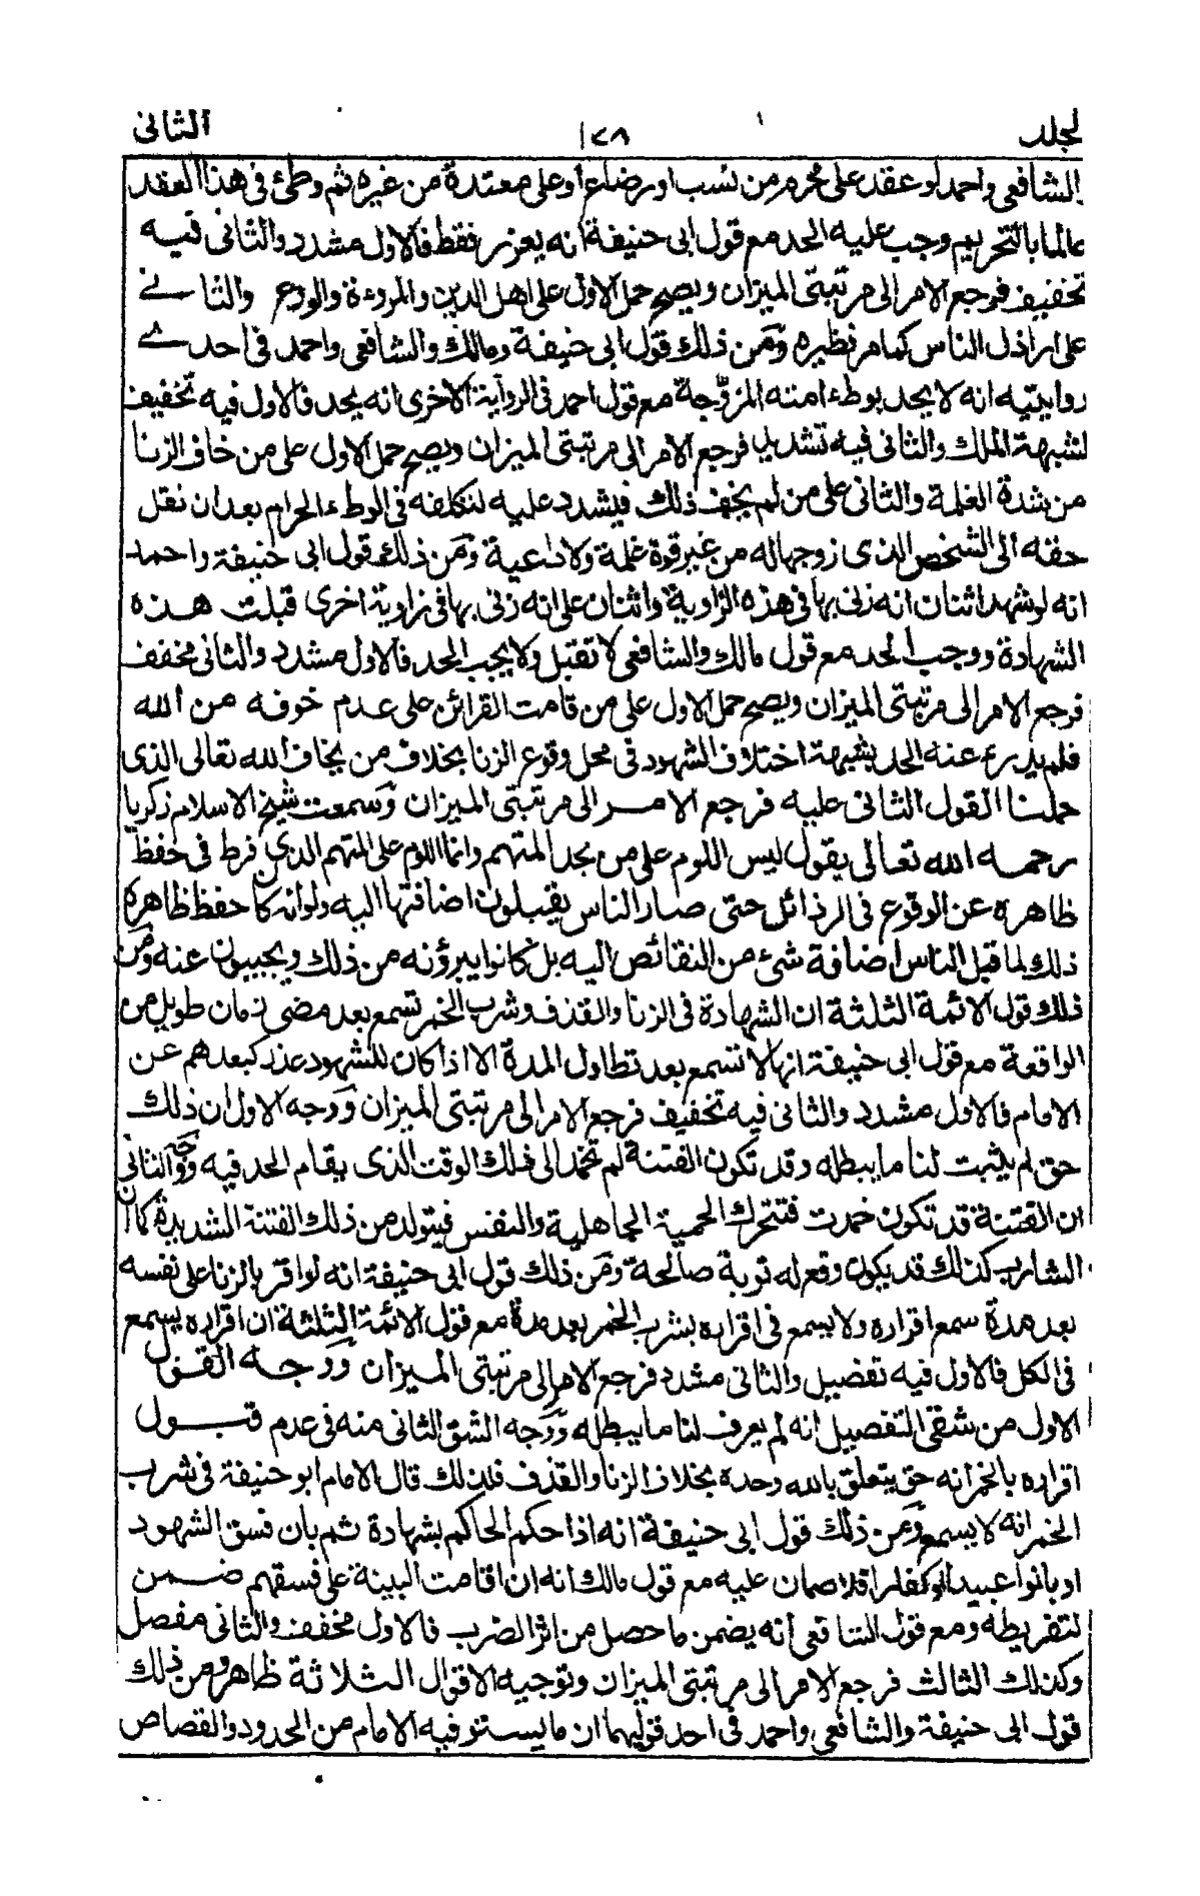 لجلد ١٢٨ الثانى
الشافعى واحمد لو عقد على محرم من نسب او رضاع او على معتدة من غيره ثم وطئ فى هذا العقد
عالما بالتحريم وجب عليه الحد مع قول ابى حنيفة انه يعزر فقط فالاول مشدد والثانى فيه
تخفيف فرجع الامر الى مرتبتى الميزان ويصح حمل الاول على اهل الدين والمروءة والورع والثانى
على اراذل الناس كما مر نظيره ومن ذلك قول ابى حنيفة ومالك والشافعى واحمد فى احدى
روايتيه انه لا يحد بوطء امته المزوجة مع قول احمد فى الرواية الاخرى انه يحد فالاول فيه تخفيف
لشبهة الملك والثانى فيه تشديد فرجع الامر الى مرتبتى الميزان ويصح حمل الاول على من خاف الزنا
من شدة الغلمة والثانى على من لم يخف ذلك فيشدد عليه لتكلفه فى الوطء الحرام بعد ان نقل
حقه الى الشخص الذى زوجها له من غير قوة غلمة ولا داعية ومن ذلك قول ابى حنيفة واحمد
انه لو شهد اثنان انه زنى بها فى هذه الزاوية واثنان على انه زنى بها فى زاوية اخرى قبلت هذه
الشهادة ووجب الحد مع قول مالك والشافعى لا تقبل ولا يجب الحد فالاول مشدد والثانى مخفف
فرجع الامر الى مرتبتى الميزان ويصح حمل الاول على من قامت القرائن على عدم خوفه من الله
فلم يدرء عنه الحد بشبهة اختلاف الشهود فى محل وقوع الزنا بخلاف من يخاف الله تعالى الذى
حملنا القول الثانى عليه فرجع الامر الى مرتبتى الميزان وسمعت شيخ الاسلام زكريا
رحمه الله تعالى يقول ليس اللوم على من يحد المتهم وانما اللوم على المتهم الذى فرط فى حفظ
ظاهره عن الوقوع فى الرذائل حتى صار الناس يقبلون اضافتها اليه ولو انه كان حفظ ظاهره
ذلك لما قبل الناس اضافة شئ من النقائص اليه بل كانوا يبرؤنه من ذلك ويجيبون عنه ومن
ذلك قول الائمة الثلثة ان الشهادة فى الزنا والقذف وشرب الخمر تسمع بعد مضى زمان طويل من
الواقعة مع قول ابى حنيفة انها لا تسمع بعد تطاول المدة الا اذا كان للشهود عذر كبعدهم عن
الامام فالاول مشدد والثانى فيه تخفيف فرجع الامر الى مرتبتى الميزان ووجه الاول ان ذلك
حق لم يثبت لنا ما يبطله وقد تكون الفتنة لم تخمد الى ذلك الوقت الذى يقام الحد فيه ووجه الثانى
ان الفتنة قد تكون خمدت فتتحرك الحمية الجاهلية والنفس فيتولد من ذلك الفتنة الشديدة كما ان
الشارب كذلك قد يكون وقع له توبة صالحة ومن ذلك قول ابى حنيفة انه لو اقر بالزنا على نفسه
بعد مدة سمع اقراره ولا يسمع فى اقراره بشرب الخمر بعد مدة مع قول الائمة الثلثة ان اقراره يسمع
فى الكل فالاول فيه تفصيل والثانى مشدد فرجع الامر الى مرتبتى الميزان ووجه القول
الاول من شقى التفصيل انه لم يعرف لنا ما يبطله ووجه الشق الثانى منه فى عدم قبول
اقراره بالخمر انه حق يتعلق بالله وحده بخلاف الزنا والقذف فلذلك قال الامام ابو حنيفة فى شرب
الخمر انه لا يسمع ومن ذلك قول ابى حنيفة انه اذا حكم الحاكم بشهادة ثم بان فسق الشهود
او بانوا عبيدا او كفارا فلا ضمان عليه مع قول مالك انه ان اقامت البينة على فسقهم ضمن
لتفريطه ومع قول الشافعى انه يضمن ما حصل من اثر الضرب فالاول مخفف والثانى مفصل
وكذلك الثالث فرجع الامر الى مرتبتى الميزان وتوجيه الاقوال الثلاثة ظاهر ومن ذلك
قول ابى حنيفة والشافعى واحمد فى احد قوليهما ان ما يستوفيه الامام من الحدود والقصاص